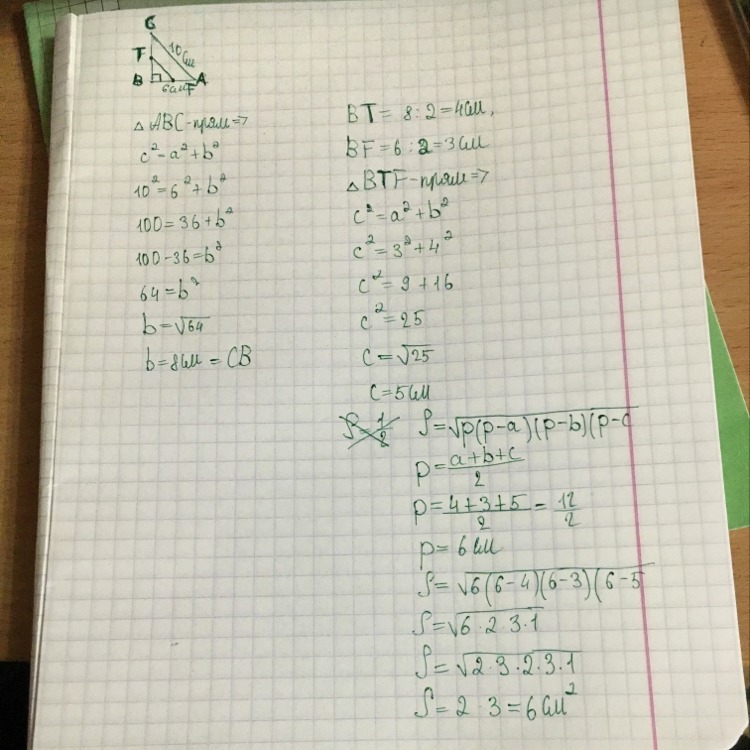 C
T
10см
B
6см
F
A
△ABC-прям=>
c²=a²+b²
10²=6²+b²
100=36+b²
100-36=b²
64=b²
b=√64
b=8см=CB
BT= 8:2=4см,
BF=6:2=3см
△BTF-прям=>
c²=a²+b²
c²=3²+4²
c²=9+16
c²=25
c=√25
c=5см
S=1/2
S=√p(p-a)(p-b)(p-c
p=a+b+c/2
p=4+3+5/2=12/2
p=6см
S=√6(6-4)(6-3)(6-5
S=√6·2·3·1
S=√2·3·2·3·1
S=2·3=6см²